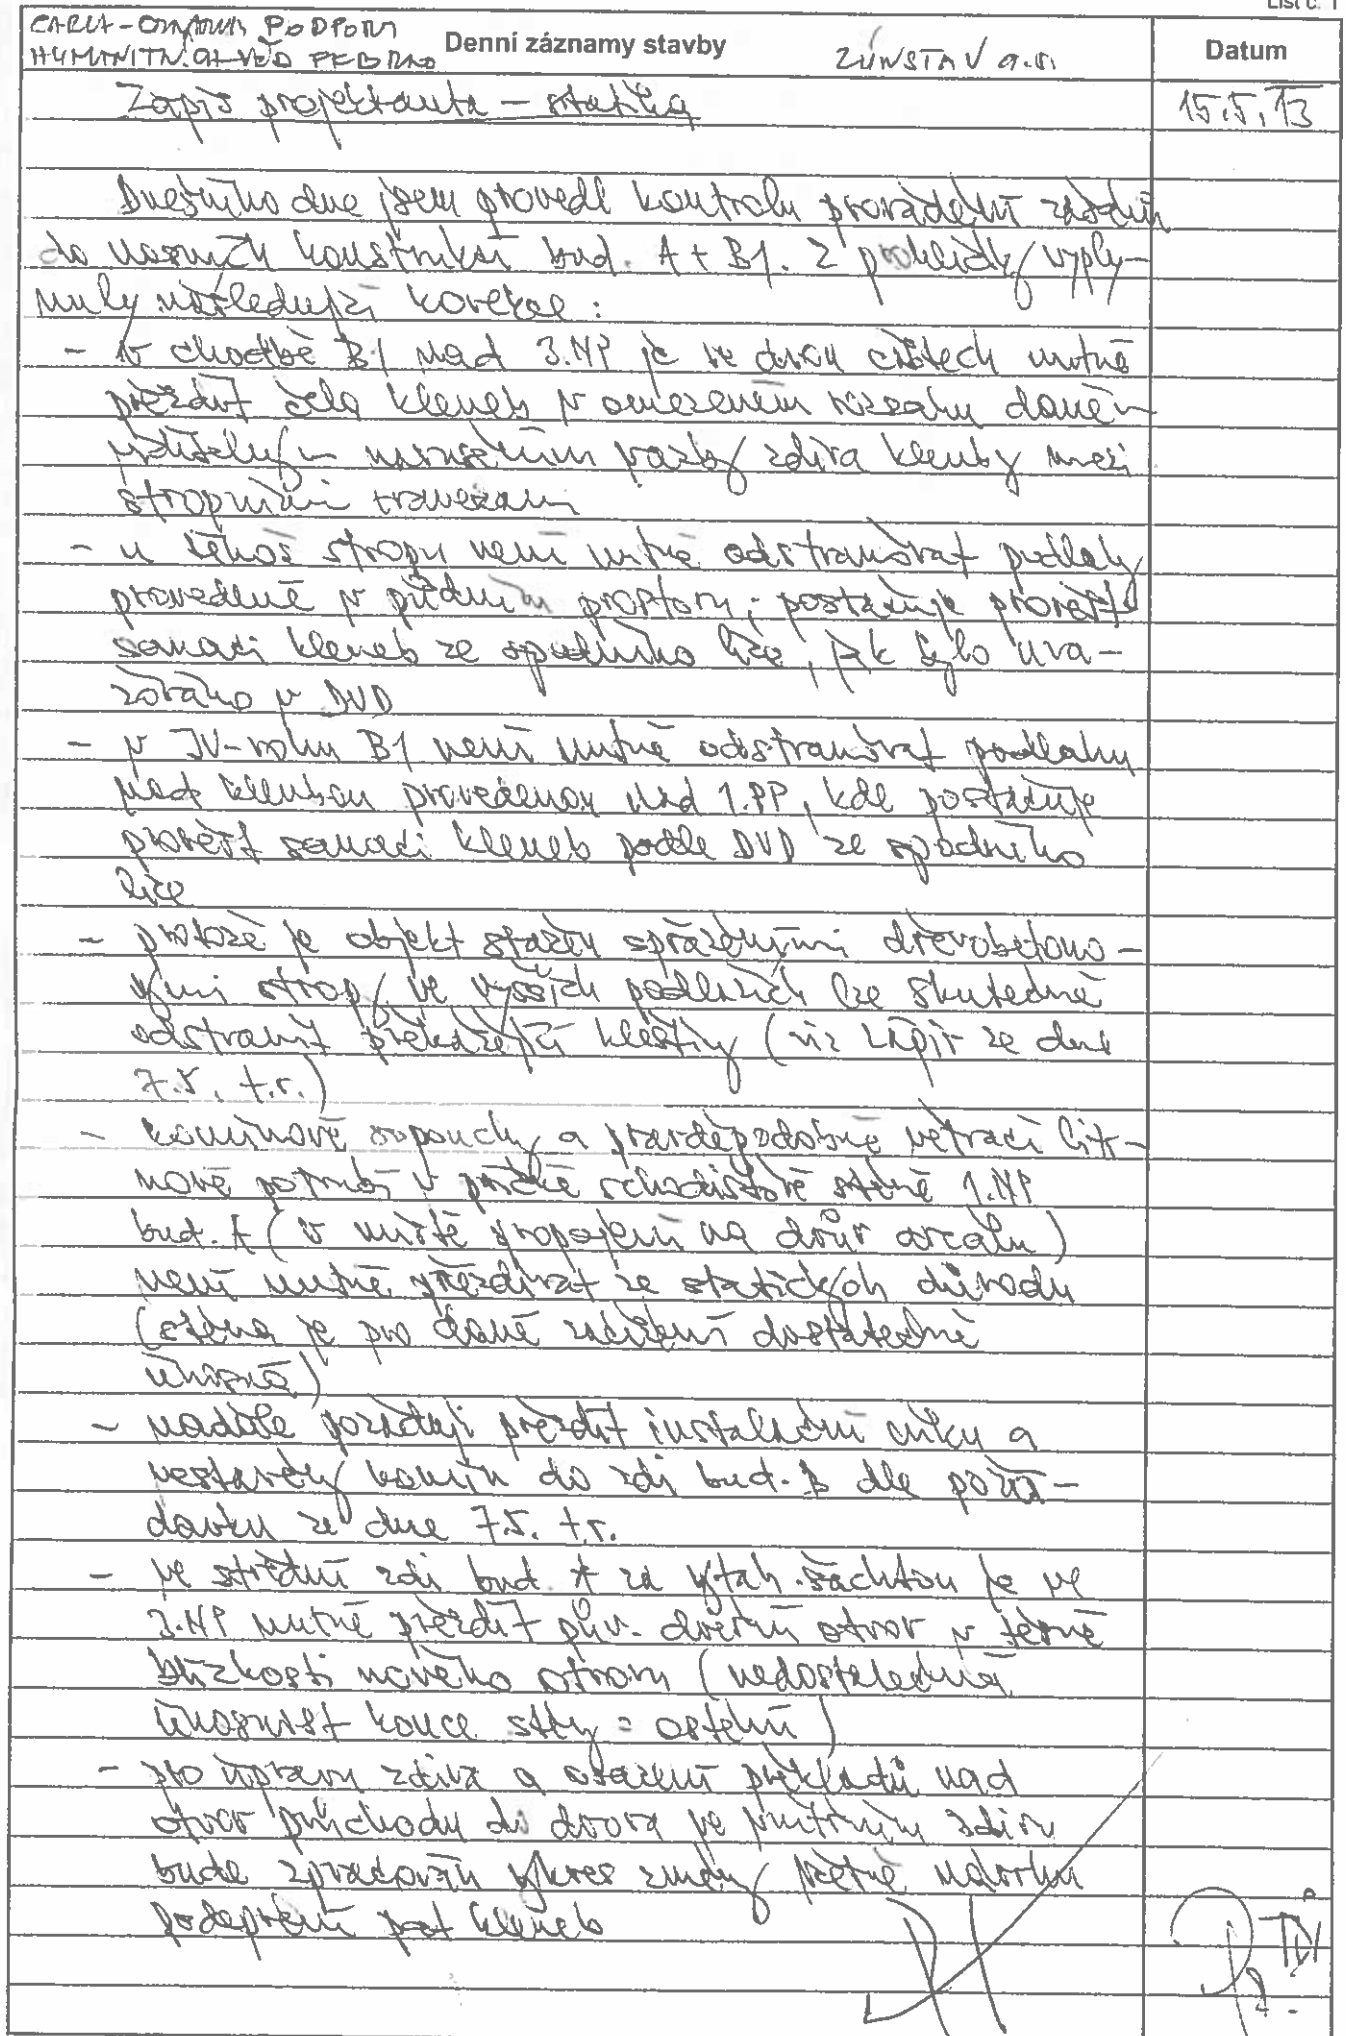 List č. 1
CARLA - PODPORY
HUMANITN. VĚD FF BRNO Denní záznamy stavby UNISTAV a.s. Datum
Zápis projektanta – statika 15.5.13
Dnešního dne jsem provedl kontrolu provádění
do nosných konstrukcí bud. A + B1. Z prohlídky vyply-
nuly následující korekce:
- v chodbě B1 nad 3.NP je ve dvou částech nutné
přezdít čela kleneb v omezeném rozsahu daném
narušením vazby zdiva klenby mezi
stropními traverzami
- u téhož stropu není nutné odstraňovat podlahy
provedené v půdním prostoru; postačuje provést
sanaci kleneb ze spodního líce, jak bylo uva-
žováno v DVD
- v JV-rohu B1 není nutné odstraňovat podlahu
nad klenbou provedenou nad 1.PP, kde postačuje
provést sanaci kleneb podle DVD ze spodního
líce
- protože je objekt stažen spřaženými dřevobetono-
vými stropy ve vyšších podlažích lze skutečně
odstranit překážející kleštiny (viz zápis ze dne
7.5. t.r.)
- komínové sopouchy a pravděpodobně větrací lit-
nové potrubí v příčné schodišťové stěně 1.NP
bud. A (v místě propojení na dvůr areálu)
není nutné přezdívat ze statických důvodu
(stěna je pro dané zatížení dostatečně
únosná)
- nadále požaduji přezdít instalační niku a
vestavěný komín do zdi bud. B dle poža-
davku ze dne 7.5. t.r.
- ve střední zdi bud. A za výtah. šachtou je ve
3.NP nutné přezdít pův. dveřní otvor v těsné
blízkosti nového otvoru (nedostatečná
únosnost konce stěny = ostění)
- pro úpravu zdiva a osazení překladů nad
otvor průchodu do dvora ve vnitřním zdivu
bude zpracován výkres změny včetně návrhu
podepření pat kleneb
TDI